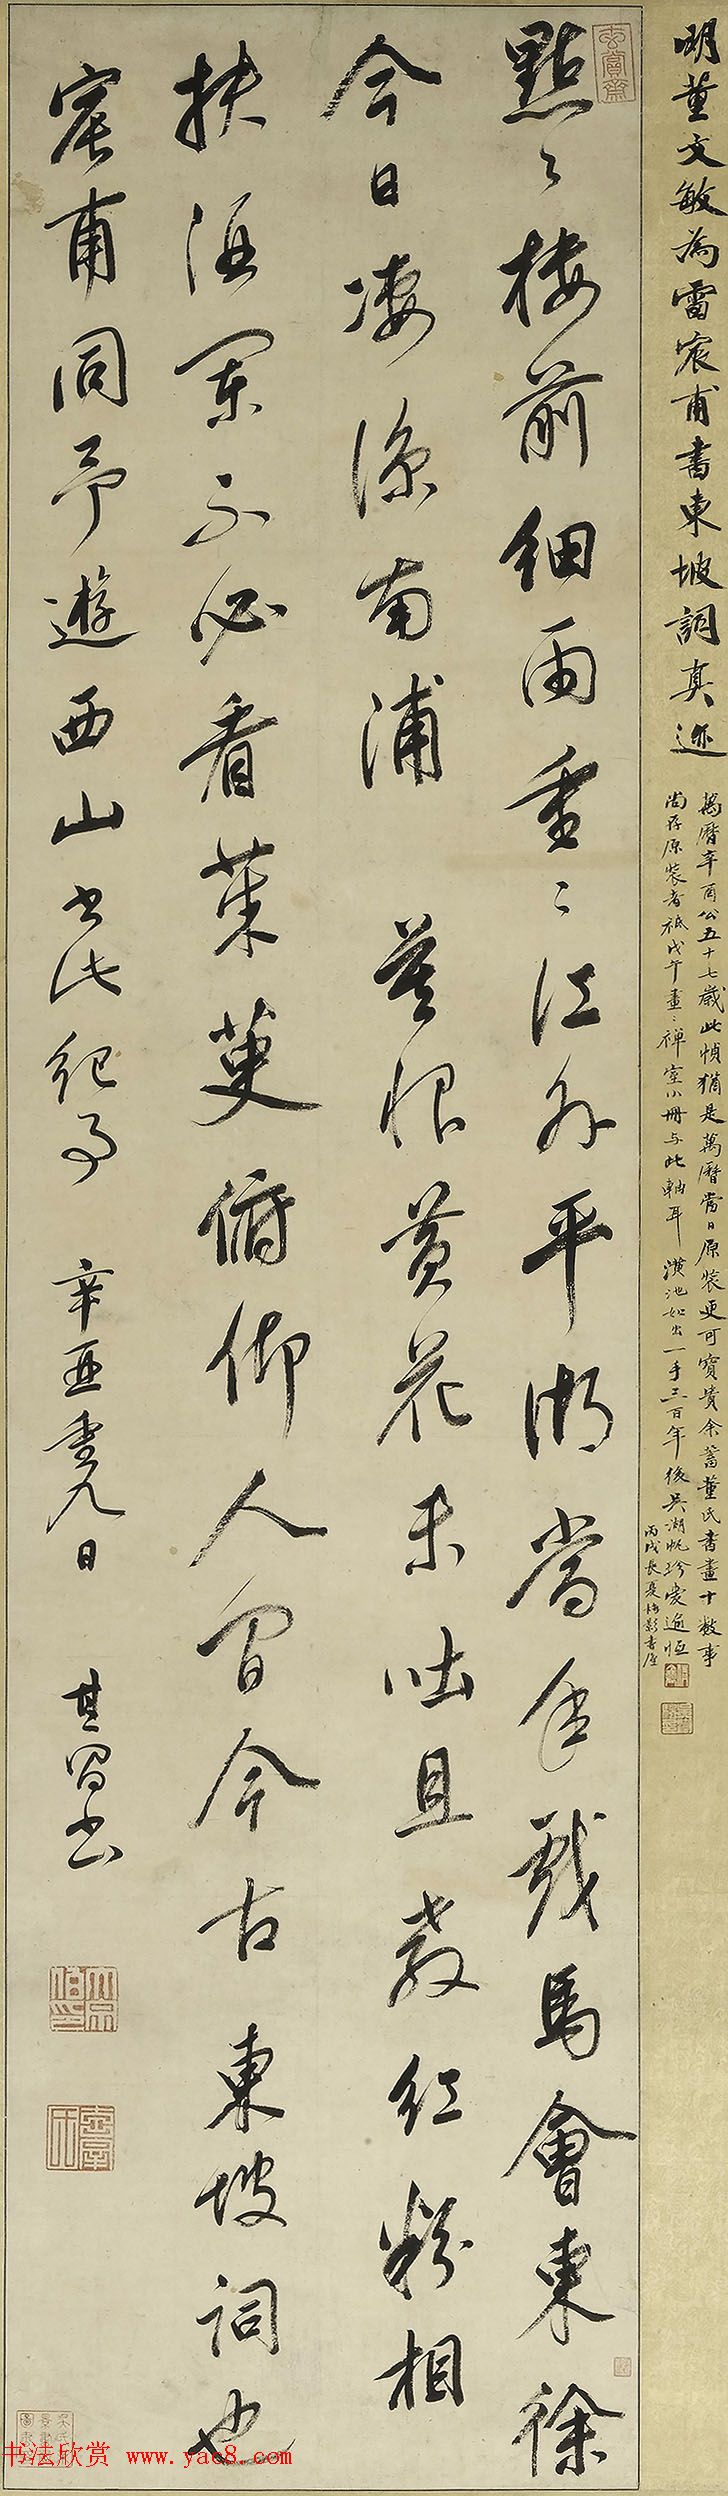 明董文敏為雷宸甫書東坡詞真迹
萬曆辛酉公五十七歲此幀猶是萬曆當日原裝更可寶貴余蓄董氏書畫十數事
尚存原裝者祗戊午畫、禪室小冊與此軸耳 潢池如出一手三百年後吳湖帆珍愛逾恒
丙戌長夏梅影書屋
玄賞齋
點〻樓前細雨重〻江外平湖當年戲馬會東徐
今日凄涼南浦 莫恨黃花未吐且教紅粉相
扶酒闌不必看茱萸俯仰人間今古 東坡詞也
宸甫同予遊西山書此紀事 辛亥重九日 其昌書
书法欣赏 www.yac8.com